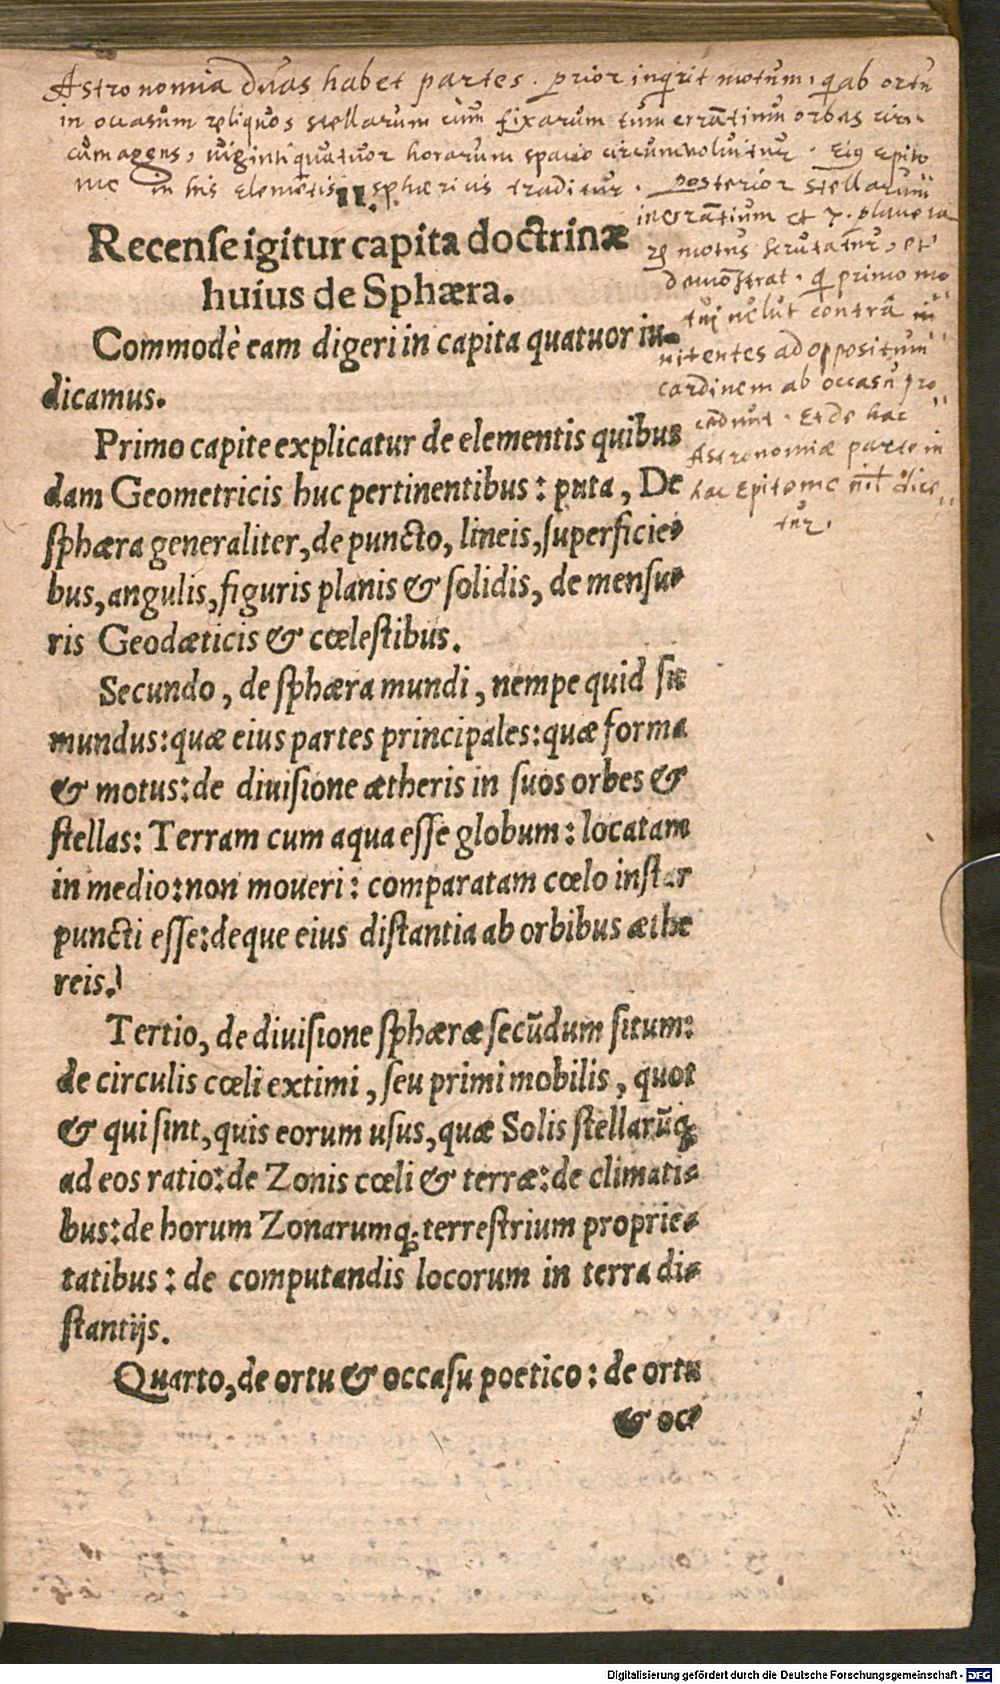 Astronomia duas habet partes. prior inqrit motum, q ab ortu
in occasum reliquos stellarum cum fixarum tum errãtium orbes cir
cumagens, viginti quatuor horarum spacio circumvoluitur. Eig Epito
me in his elemẽtis sphæricis traditur. posterior stellarum
inerrãtium et 7. planeta
motus scrutatur, et
demõstrat. q primo mo
tui velut contra ni
nitentes ad oppositum
cardinem ab occasu pro
cedunt. Et de hac
Astronomiæ parte in
hac Epitome nil dice
tur.
II.
Recenſe igitur capita doctrinæ
huius de Sphæra.
Commodè eam digeri in capita quatuor iu-
dicamus.
Primo capite explicatur de elementis quibus
dam Geometricis huc pertinentibus: puta, De
ſphæra generaliter, de puncto, lineis, ſuperficie-
bus, angulis, figuris planis & ſolidis, de menſu-
ris Geodæticis & cœleſtibus.
Secundo, de ſphæra mundi, nempe quid ſit
mundus: quæ eius partes principales: quæ forma
& motus: de diuiſione ætheris in ſuos orbes &
ſtellas: Terram cum aqua eſſe globum: locatam
in medio: non moueri: comparatam cœlo inſtar
puncti eſſe: deque eius diſtantia ab orbibus æthe
reis.
Tertio, de diuiſione ſphæræ ſecũdum ſitum:
de circulis cœli extimi, ſeu primi mobilis, quot
& qui ſint, quis eorum uſus, quæ Solis ſtellarũq;
ad eos ratio: de Zonis cœli & terræ: de climati-
bus: de horum Zonarumq; terreſtrium proprie-
tatibus: de computandis locorum in terra di-
ſtantijs.
Quarto, de ortu & occaſu poetico: de ortu
& oc-
Digitalisierung gefördert durch die Deutsche Forschungsgemeinschaft - DFG